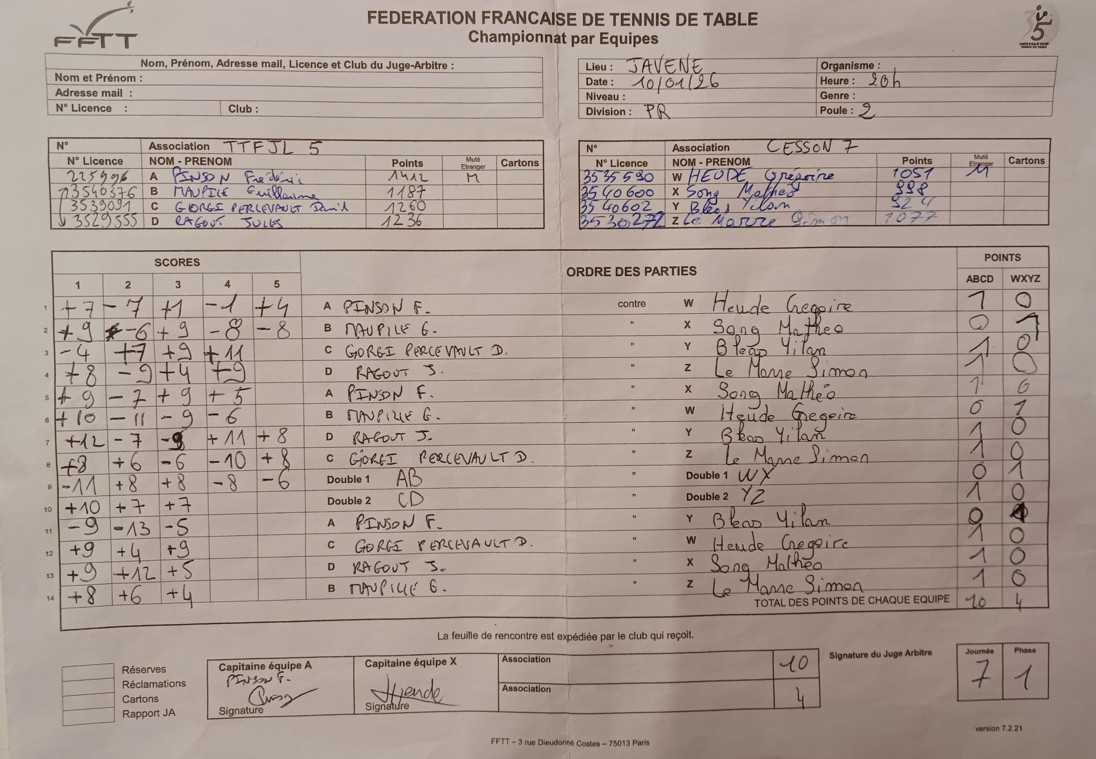 FEDERATION FRANCAISE DE TENNIS DE TABLE
Championnat par Equipes
FFTT
Nom, Prénom, Adresse mail, Licence et Club du Juge-Arbitre :
Nom et Prénom :
Adresse mail :
N° Licence : Club :
Lieu : JAVENE Organisme :
Date : 10/01/26 Heure : 20h
Niveau : Genre :
Division : PR Poule : 2
N° Association TTFJL 5
N° Licence NOM - PRENOM Points Muté Etranger Cartons
225996 A PINSON Frédéric 1412 M
3540376 B MAUPILE Guillaume 1187
3539091 C GORGI PERCEVAULT David 1260
3529555 D RAGOUT JULES 1236
N° Association CESSON 7
N° Licence NOM - PRENOM Points Muté Etranger Cartons
3535590 W HEUDE Gregoire 1051 M
3540600 X Song Mathéo 998
3540602 Y Bleas Yilan 924
3530272 Z Le Marre Simon 1077
SCORES ORDRE DES PARTIES POINTS
1 2 3 4 5 ABCD WXYZ
1 +7 -7 +1 -1 +4 A PINSON F. contre W Heude Gregoire 1 0
2 +9 -6 +9 -8 -8 B MAUPILE G. " X Song Matheo 0 1
3 -4 +7 +9 +11 C GORGI PERCEVAULT D. " Y Bleas Yilan 1 0
4 +8 -9 +4 +9 D RAGOUT J. " Z Le Marre Simon 1 0
5 +9 -7 +9 +5 A PINSON F. " X Song Mathéo 1 0
6 +10 -11 -9 -6 B MAUPILE G. " W Heude Gregoire 0 1
7 +12 -7 -9 +11 +8 D RAGOUT J. " Y Bleas Yilan 1 0
8 +8 +6 -6 -10 +8 C GORGI PERCEVAULT D. " Z Le Marre Simon 1 0
9 -11 +8 +8 -8 -6 Double 1 AB " Double 1 WX 0 1
10 +10 +7 +7 Double 2 CD " Double 2 YZ 1 0
11 -9 -13 -5 A PINSON F. " Y Bleas Yilan 0 1
12 +9 +4 +9 C GORGI PERCEVAULT D. " W Heude Gregoire 1 0
13 +9 +12 +5 D RAGOUT J. " X Song Mathéo 1 0
14 +8 +6 +4 B MAUPILE G. " Z Le Marre Simon 1 0
TOTAL DES POINTS DE CHAQUE EQUIPE 10 4
La feuille de rencontre est expédiée par le club qui reçoit.
Réserves
Réclamations
Cartons
Rapport JA
Capitaine équipe A
PINSON F.
Signature
Capitaine équipe X
Heude
Signature
Association 10
Association 4
Signature du Juge Arbitre
Journée Phase
7 1
version 7.2.21
FFTT – 3 rue Dieudonné Costes – 75013 Paris